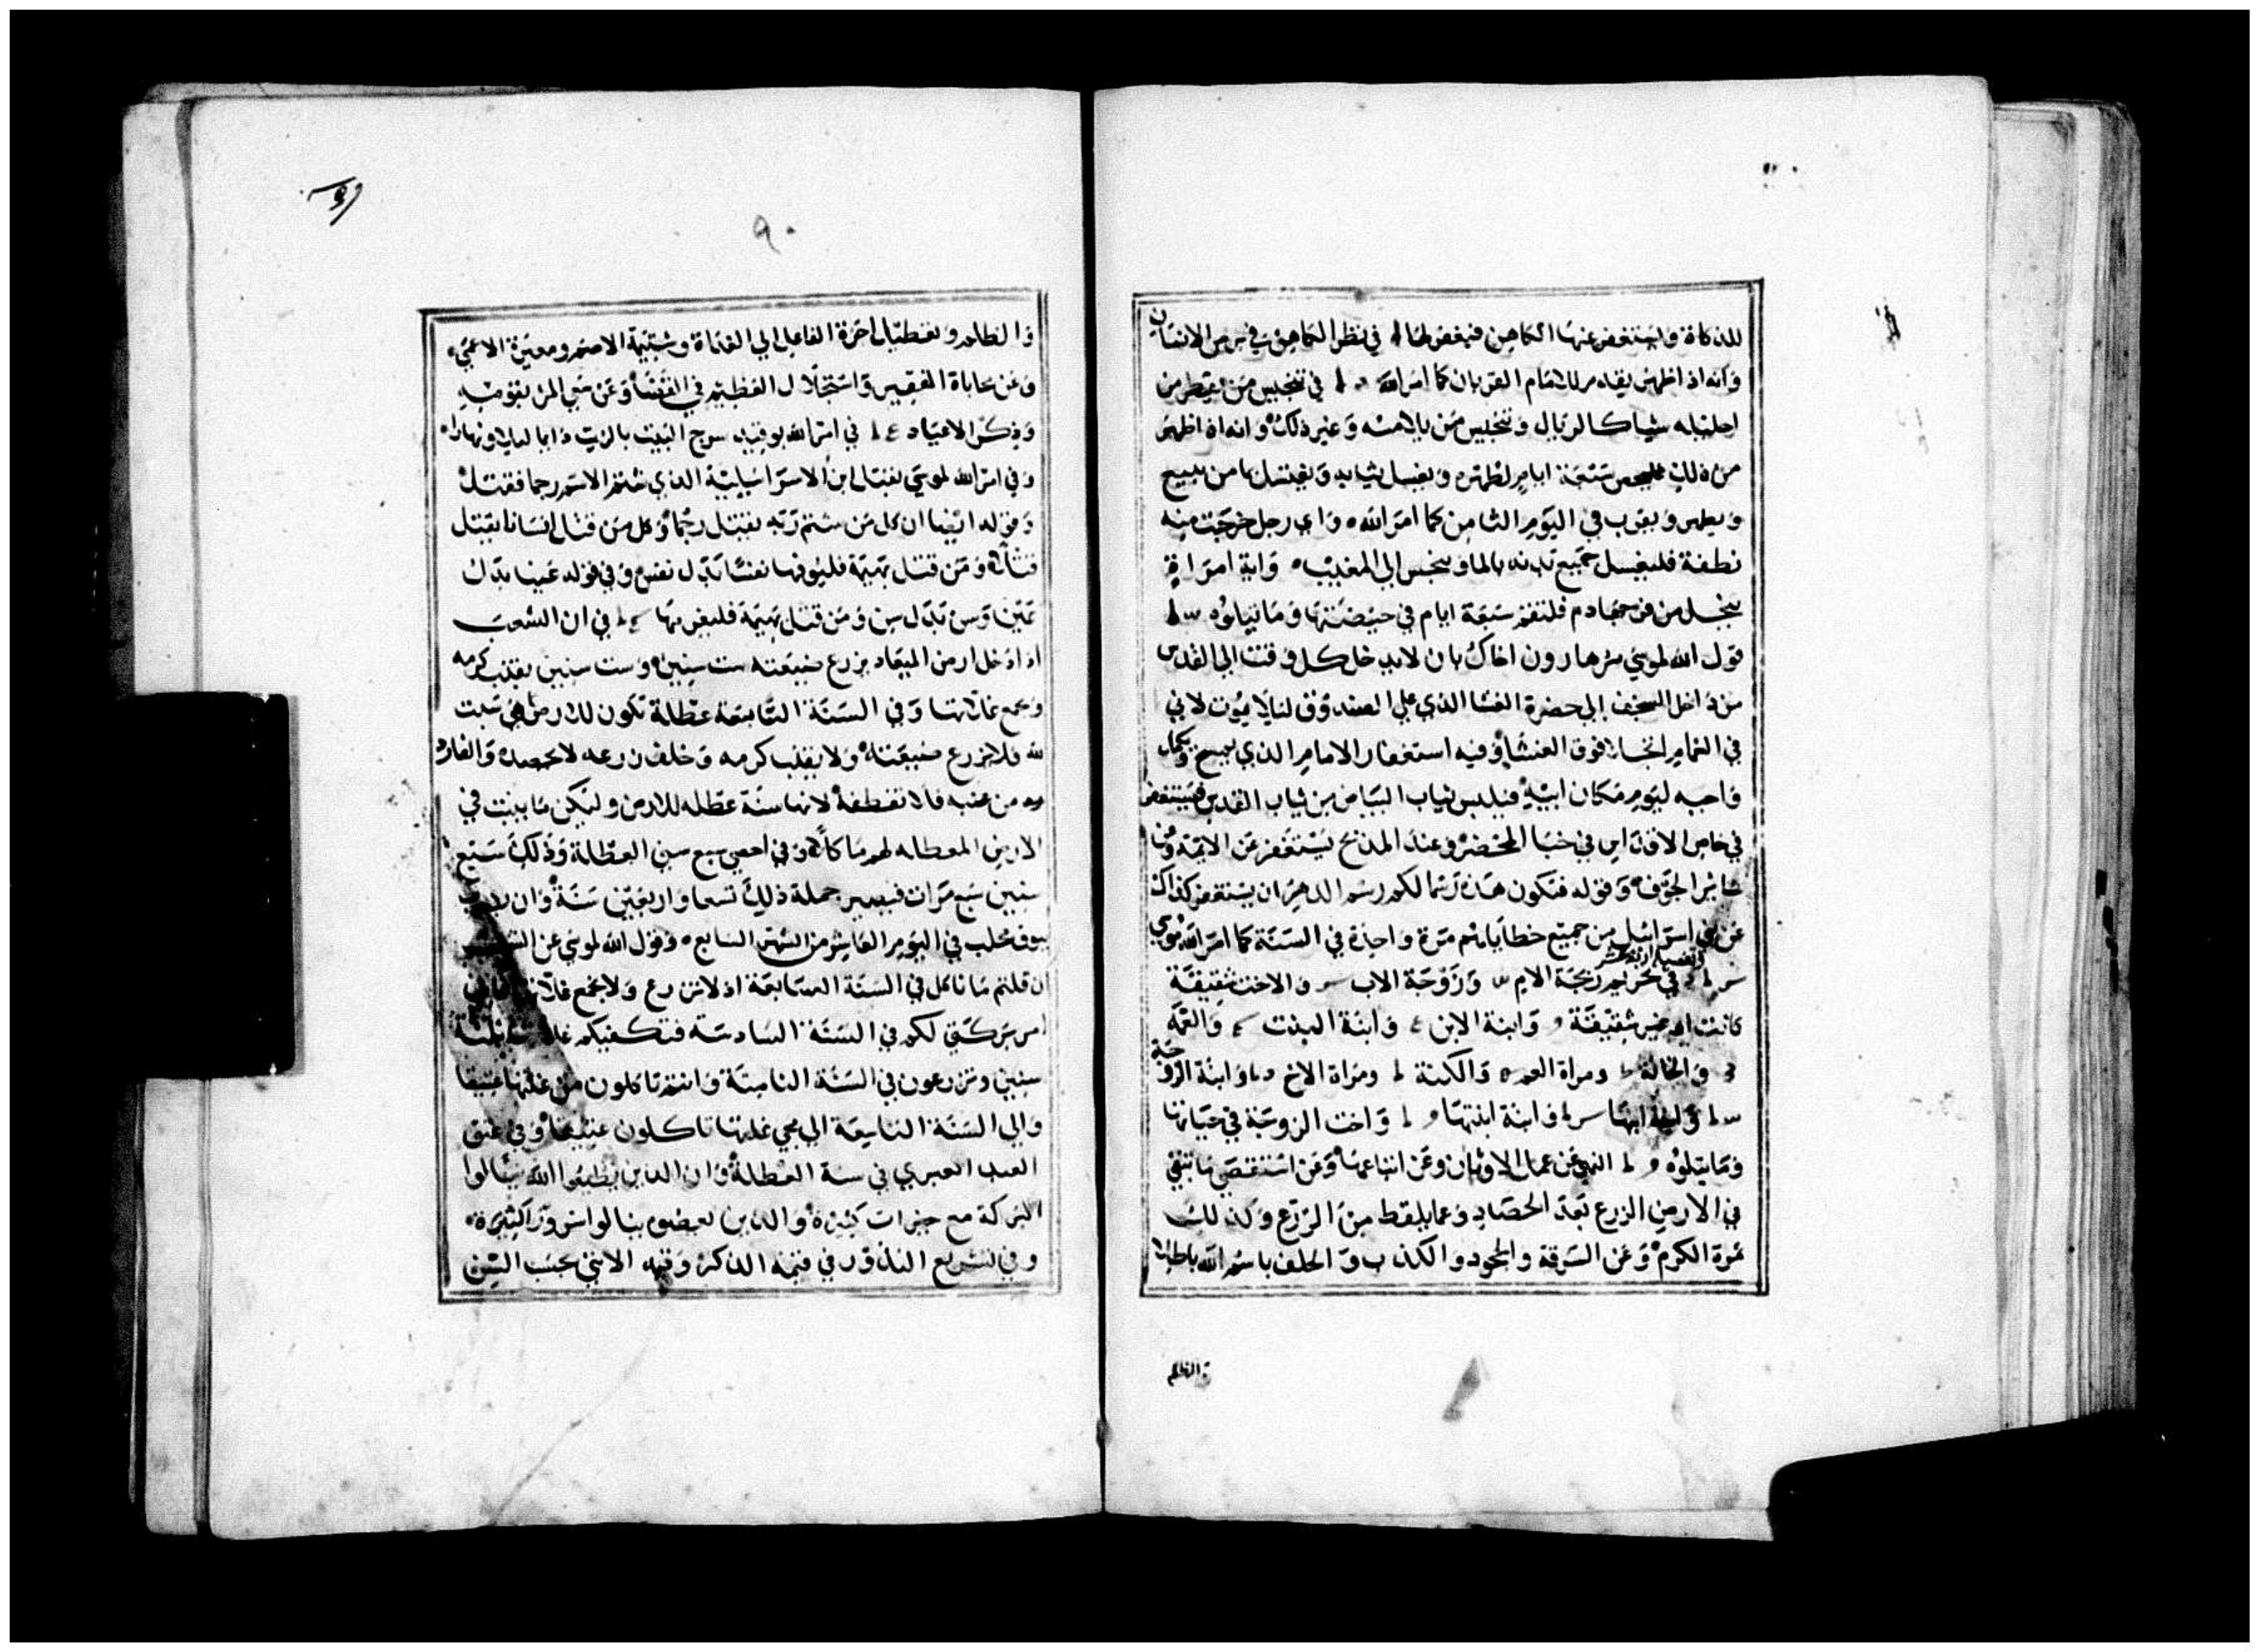 للذكاة وليستغفر عنها الكاهن فيغفر لها في نظر الكاهن في برص الانسان
وانه اذا طهر يقدم للامام القربان كما امر الله في تنجيس من يقطر من
احليله شيا كالريال وتنجيس من يلامسه وغير ذلك وانه اذا طهر
من ذلك سبعة ايام لطهره ويغسل ثيابه ويغتسل بما من ينبيع
ويطهر ويقرب في اليوم الثامن كما امر الله واي رجل خرجت منه
نطفة فليغسل جميع بدنه بالماء وينجس الي المغيب واية امراة
دم فلتقم سبعة ايام في حيضتها وما يتلوه
قول الله لموسي مر هارون اخاك بان لا يدخل كل وقت الي القدس
من داخل السجف الي حضرة الغشا الذي علي الصندوق لئلا يموت لاني
في الغمام اتجلا فوق الغشا وفيه استغفار الامام الذي يمسح ويكمل
واجبه ليوم مكان ابيه فيلبس ثياب البياض من ثياب القدس فيستغفر
في خاص الاقداس في خبا المحضر وعند المذبح يستغفر عن الايمة وعن
ساير الجوق وقوله فتكون هذه رسما لكم رسم الدهر ان يستغفر كذاك
عن بني اسرائيل من جميع خطاياهم مرة واحدة في السنة كما امر الله موسي
في تحريم زيجة الام وزوجة الاب والاخت شقيقة
كانت او غير شقيقة وابنة الابن وابنة البنت والعمة
والخالة ومراة العم والكنة ومراة الاخ وابنة الزوجة
وابنة ابنها وابنة ابنتها واخت الزوجة في حياتها
وما يتلوه النهي عن عمل الاوثان وعن اتباعها وعن استنقصي ما بقي
في الارض الزرع بعد الحصاد وعما يلقط من الزرع وكذلك
ثمرة الكرم وعن السرقة والجحود والكذب والحلف باسم الله باطلا
والظلم
٩٠
والظلم وتعطيل اجرة الفاعل الي الغداة وشتيمة الاصم ومعيرة الاعمي
وعن محاباة الفقير واستجلال العظيم في القضا وعن
وذكر الاعياد في امر الله بوقيد سرج البيت بالزيت دايما ليلا ونهارا
وفي امر الله لموسي بقتل ابن الاسرائيلية الذي شتم الاسم رجما فقتل
وقوله ايضا ان كل من شتم ربه يقتل رجما وكل من قتل انسانا يقتل
قتلا ومن قتل بهيمة فليوفها نفسا بدل نفس وفي قوله عينا بدل
عين وسن بدل سن ومن قتل بهيمة فليغرمها في ان الشعب
اذا دخل ارض الميعاد يزرع ضيعته ست سنين وست سنين يقضب كرمه
ويجمع غلاتها وفي السنة السابعة عطلة تكون للارض هي سبت
لله فلا تزرع ضيعته ولا يقضب كرمه وخلف زرعه لا يحصده
من عنبه فلا تقطفه لانها سنة عطله للارض وليكن ما ينبت في
الارض المعطله لهم ماكلا وفي احصي سبع سني العطلة وذلك سبع
سنين سبع مرات فيصير جملة ذلك تسعا واربعين سنة وان
ببوق في اليوم العاشر من الشهر السابع وقول الله لموسي عن
ان قلتم ما ناكل في السنة السابعة اذ لا نزرع ولا نجمع غلاتنا
امر بركتي لكم في السنة السادسة فتكفيكم
سنين وتزرعون في السنة الثامنة وانتم تاكلون من غلتها عتيقا
والي السنة التاسعة الي مجي غلتها تاكلون عتيقا وفي عتق
العبد العبري في سنة العطلة وان الذين يطيعوا الله ينالوا
البركة مع خيرات كثيرة والذين يعصوه ينالوا شرورا كثيرة
وفي تشريع النذور في قيمة الذكر وقيمة الانثي بحسب السن